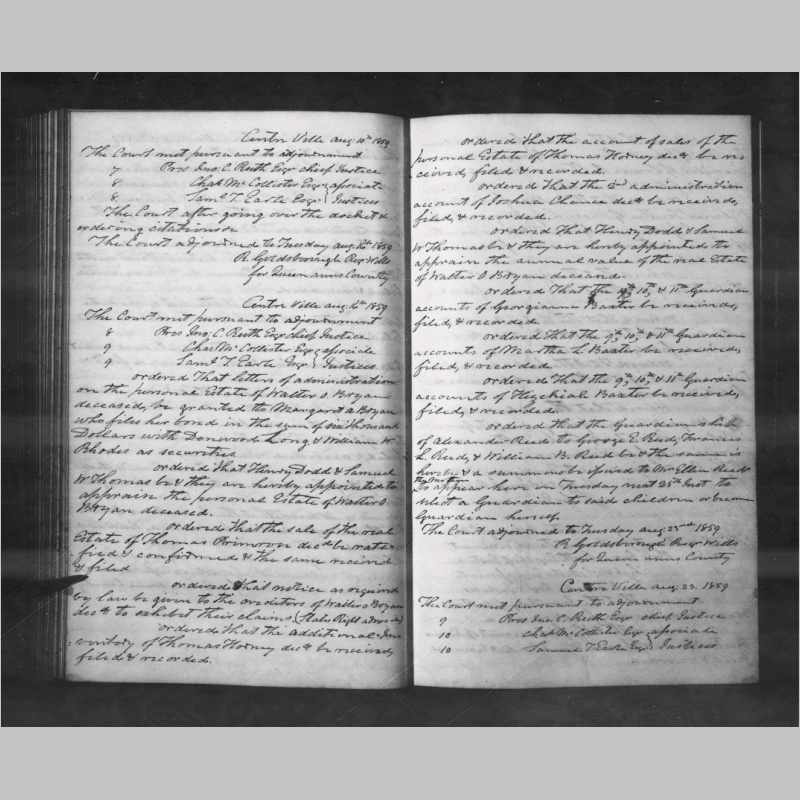 Centre Ville aug. 10th 1859
The Court met pursuant to adjournment
7 Pres Jno. C. Ruth Esqr chief Justice
8 Chas McCollister Esqr associate
8 Saml T. Earle Esqr Justices
The Court after going over the docket &
ordering citations
The Court adjourned to Tuesday aug. 1859
R. Goldsborough Regr Wills
for Queen anns County
Centre Ville aug. 1859
The Court met pursuant to adjournment
8 Pres Jno. C. Ruth Esqr chief Justice
9 Chas McCollister Esqr associate
9 Saml T. Earle Esqr Justices
ordered that letters of administration
on the personal Estate of Walter O. Bryan
deceased, be granted to Margaret a Bryan
who files her bond in the sum of six thousand
Dollars with Long & William W.
Rhodes as securities
ordered that Henry Dodd & Samuel
W Thomas be & they are hereby appointed to
appraise the personal Estate of Walter O
Bryan deceased.
ordered that the sale of the real
Estate of Thomas decd be rati-
fied & confirmed & the same received
& filed
ordered that notice as required
by law be given to the creditors of Walter O Bryan
decd to exhibit their claims (States Right adver se)
ordered that the additional Inn
ventory of Thomas Honey decd be received,
filed & recorded.
ordered that the account of sales of the
personal Estate of Thomas Honey decd be re
ceived, filed & recorded.
ordered that the 2d administration
account of Joshua Chance decd be received,
filed, & recorded.
ordered that Henry Dodd & Samuel
W Thomas be & they are hereby appointed to
appraise the annual value of the real Estate
of Walter O Bryan deceased.
ordered that the 9th, 10th, & 11th Guardian
accounts of Georgianna Baxter be received,
filed, & recorded.
ordered that the 9th, 10th, & 11th Guardian
accounts of Martha L Baxter be received,
filed, & recorded.
ordered that the 9th, 10th, & 11th Guardian
accounts of Hezekiah Baxter be received,
filed, & recorded.
ordered that the Guardian ship
of Alexander Reed to George E. Reed, Francis
L. Reed, & William B. Reed be & the same is
hereby & a summons be issued to Mrs Ellen Reed
to appear here on Tuesday next 23rd Inst to
select a Guardian to said children or become
Guardian herself.
The Court adjourned to Tuesday aug. 23rd 1859
R Goldsborough Regr Wills
for Queen anns County
Centre Ville aug. 23. 1859
The Court met pursuant to adjournment
9 Pres Jno. C. Ruth Esqr chief Justice
10 Chas McCollister Esqr associate
10 Samuel T. Earle Esqr Justices